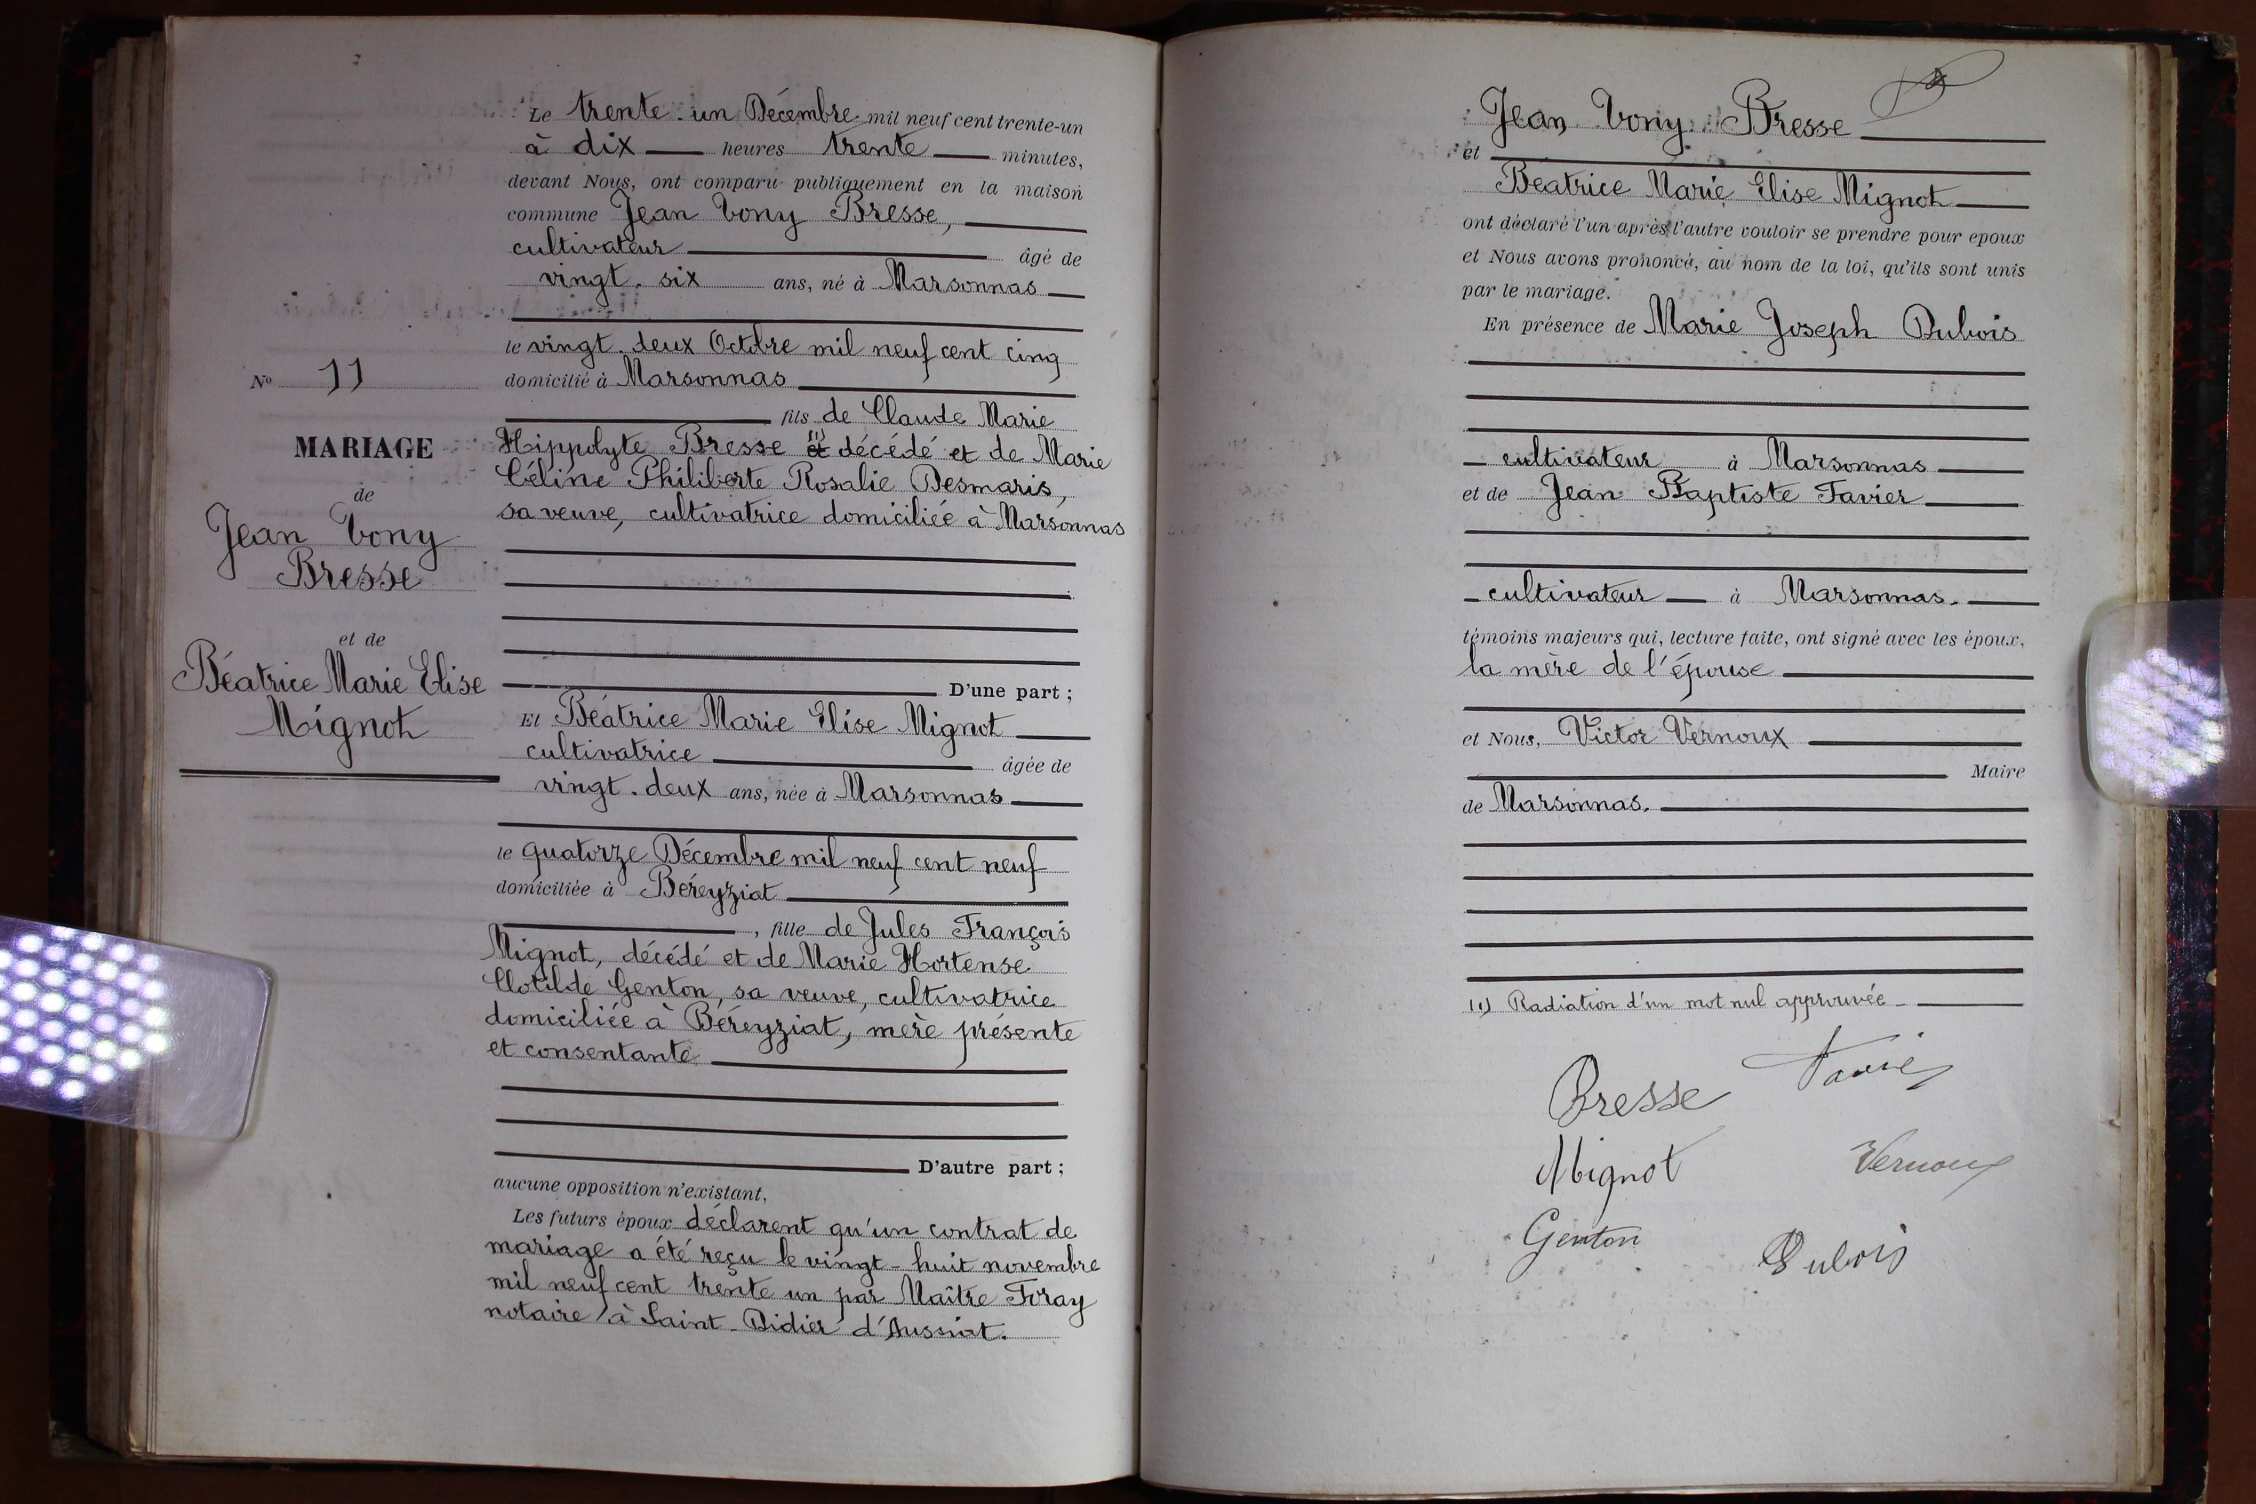 Le trente-un Décembre mil neuf cent trente-un
à dix heures trente minutes,
devant Nous, ont comparu publiquement en la maison
commune Jean Tony Bresse,
cultivateur âgé de
vingt-six ans, né à Marsonnas
le vingt-deux Octobre mil neuf cent cinq
domicilié à Marsonnas
fils de Claude Marie
Hippolyte Bresse (1) et décédé et de Marie
Céline Philiberte Rosalie Desmaris,
sa veuve, cultivatrice domiciliée à Marsonnas
D'une part ;
No 11
MARIAGE
de
Jean Tony
Bresse
et de
Béatrice Marie Elise
Mignot
Et Béatrice Marie Elise Mignot
cultivatrice âgée de
vingt-deux ans, née à Marsonnas
le quatorze Décembre mil neuf cent neuf
domiciliée à Béreyziat
, fille de Jules François
Mignot, décédé et de Marie Hortense
Clotilde Genton, sa veuve, cultivatrice
domiciliée à Béreyziat, mère présente
et consentante
D'autre part ;
aucune opposition n'existant,
Les futurs époux déclarent qu'un contrat de
mariage a été reçu le vingt-huit novembre
mil neuf cent trente un par Maître Foray
notaire à Saint-Didier d'Aussiat.
Jean Tony Bresse
et
Béatrice Marie Elise Mignot
ont déclaré l'un après l'autre vouloir se prendre pour epoux
et Nous avons prononcé, au nom de la loi, qu'ils sont unis
par le mariage.
En présence de Marie Joseph Dubois
cultivateur à Marsonnas
et de Jean Baptiste Favier
cultivateur à Marsonnas.
témoins majeurs qui, lecture faite, ont signé avec les époux,
la mère de l'épouse
et Nous, Victor Vernoux
Maire
de Marsonnas.
(1) Radiation d'un mot nul approuvée
Bresse Favier
Mignot Vernoux
Genton Dubois